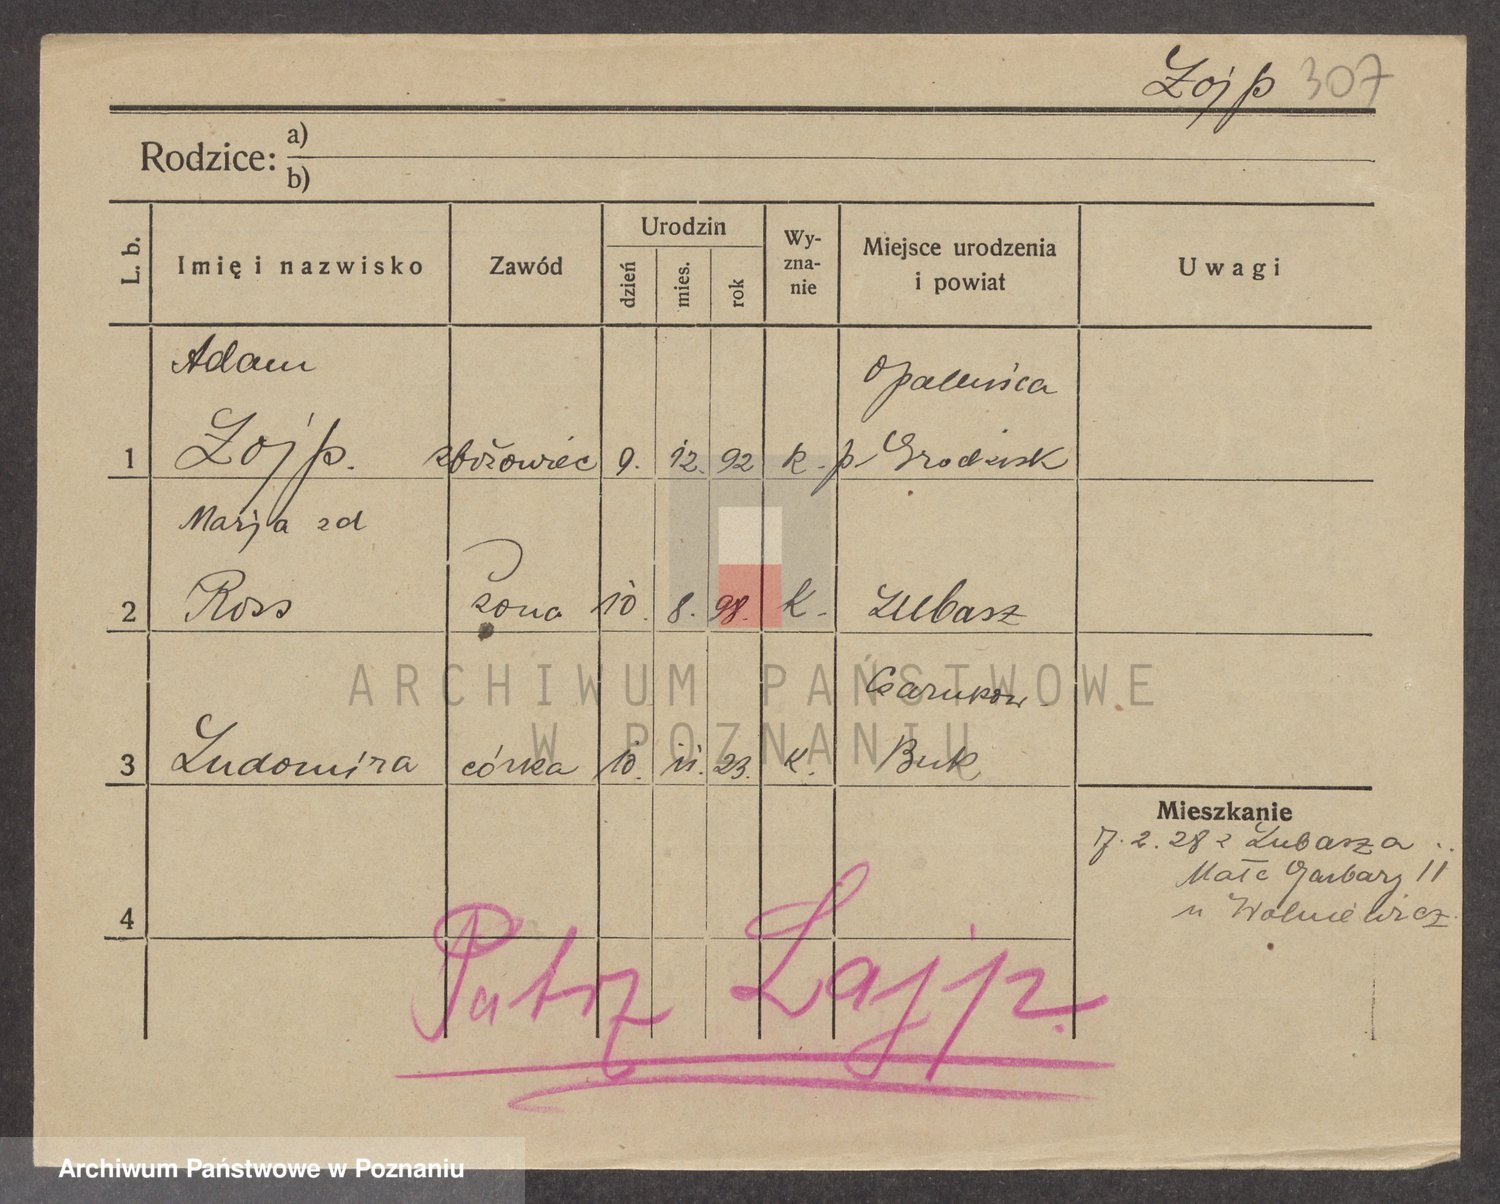 Lojp 307
Rodzice: a)
b)
L. b. Imię i nazwisko Zawód Urodzin dzień mies. rok Wy-zna-nie Miejsce urodzenia i powiat Uwagi
Adam Opalenica
1 Lojp. zbożowiec 9. 12. 92 k. p. Grodzisk
Marja zd
2 Ross żona 10. 8. 98. K. Lubasz
Czarnków
3 Ludomira córka 10. 11. 23. K. Buk
Mieszkanie
7. 2. 28 z Lubasza
Małe Garbary 11
u Wolniewicz
4
Patrz Lajp.
ARCHIWUM PAŃSTWOWE
W POZNANIU
Archiwum Państwowe w Poznaniu